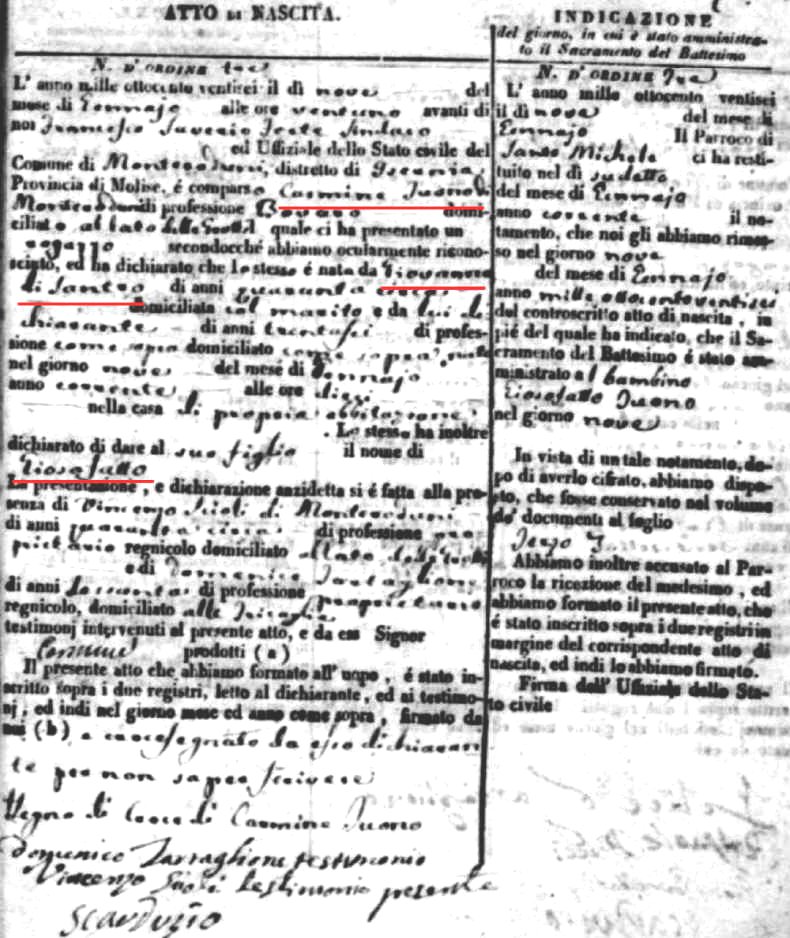 ATTO DI NASCITA.
N. D'ORDINE tre
L' anno mille ottocento ventisei il dì nove del
mese di Gennajo alle ore ventuno avanti di
noi Francesco Saverio Sindaco
ed Uffiziale dello Stato civile del
Comune di Monteroduni, distretto di Isernia
Provincia di Molise, é comparso Carmine Juono di
Monteroduni di professione Bovaro domi-
ciliato quale ci ha presentato un
ragazzo secondocché abbiamo ocularmente ricono-
sciuto, ed ha dichiarato che lo stesso é nata da Giovanna
di Santro di anni quaranta
domiciliata col marito e da lui di-
chiarante di anni trentasei di profes-
sione come sopra domiciliato come sopra nato
nel giorno nove del mese di Gennajo
anno corrente alle ore dieci
nella casa di propria abbitazione
. Lo stesso ha inoltre
dichiarato di dare al suo figlio il nome di
Giosafatto
La presentazione, e dichiarazione anzidetta si é fatta alla pre-
senza di Vincenzo Scioli di Monteroduni
di anni quaranta di professione pro
prietario regnicolo domiciliato
e di Domenico Tartaglione
di anni sessanta di professione proprietario
regnicolo, domiciliato alle
testimonj intervenuti al presente atto, e da esso Signor
Comune prodotti (a)
Il presente atto che abbiamo formato all' uopo, é stato in-
scritto sopra i due registri, letto al dichiarante, ed ai testimo-
nj, ed indi nel giorno mese ed anno come sopra, firmato da
noi (b) e crocesegnato da esso dichiaran
te per non saper scrivere
Segno di Croce di Carmine Juono
Domenico Tartaglione testimonio
Vincenzo Scioli testimonio presente
Scarduzio
INDICAZIONE
del giorno, in cui è stato amministra-
to il Sacramento del Battesimo
N. D'ORDINE Tre
L' anno mille ottocento ventisei
il dì nove del mese di
Gennajo Il Parroco di
Santo Michele ci ha resti-
tuito nel dì sudetto
del mese di Gennajo
anno corrente il no-
tamento, che noi gli abbiamo rimes-
so nel giorno nove
del mese di Gennajo
anno mille ottocentoventisei
del controscritto atto di nascita, in
pié del quale ha indicato, che il Sa-
cramento del Battesimo é stato am-
ministrato al bambino
Giosafatto Juono
nel giorno nove
In vista di un tale notamento, do-
po di averlo cifrato, abbiamo dispo-
sto, che fosse conservato nel volume
de' documenti al foglio
Abbiamo inoltre accusato al Par-
roco la ricezione del medesimo, ed
abbiamo formato il presente atto, che
é stato inscritto sopra i due registri in
margine del corrispondente atto di
nascita, ed indi lo abbiamo firmato.
Firma dell' Uffiziale dello Sta-
to civile